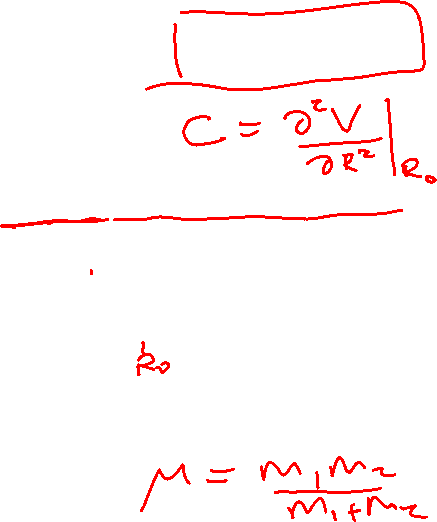 C = ∂²V/∂R² |R₀
R₀
μ = m₁m₂/m₁+m₂